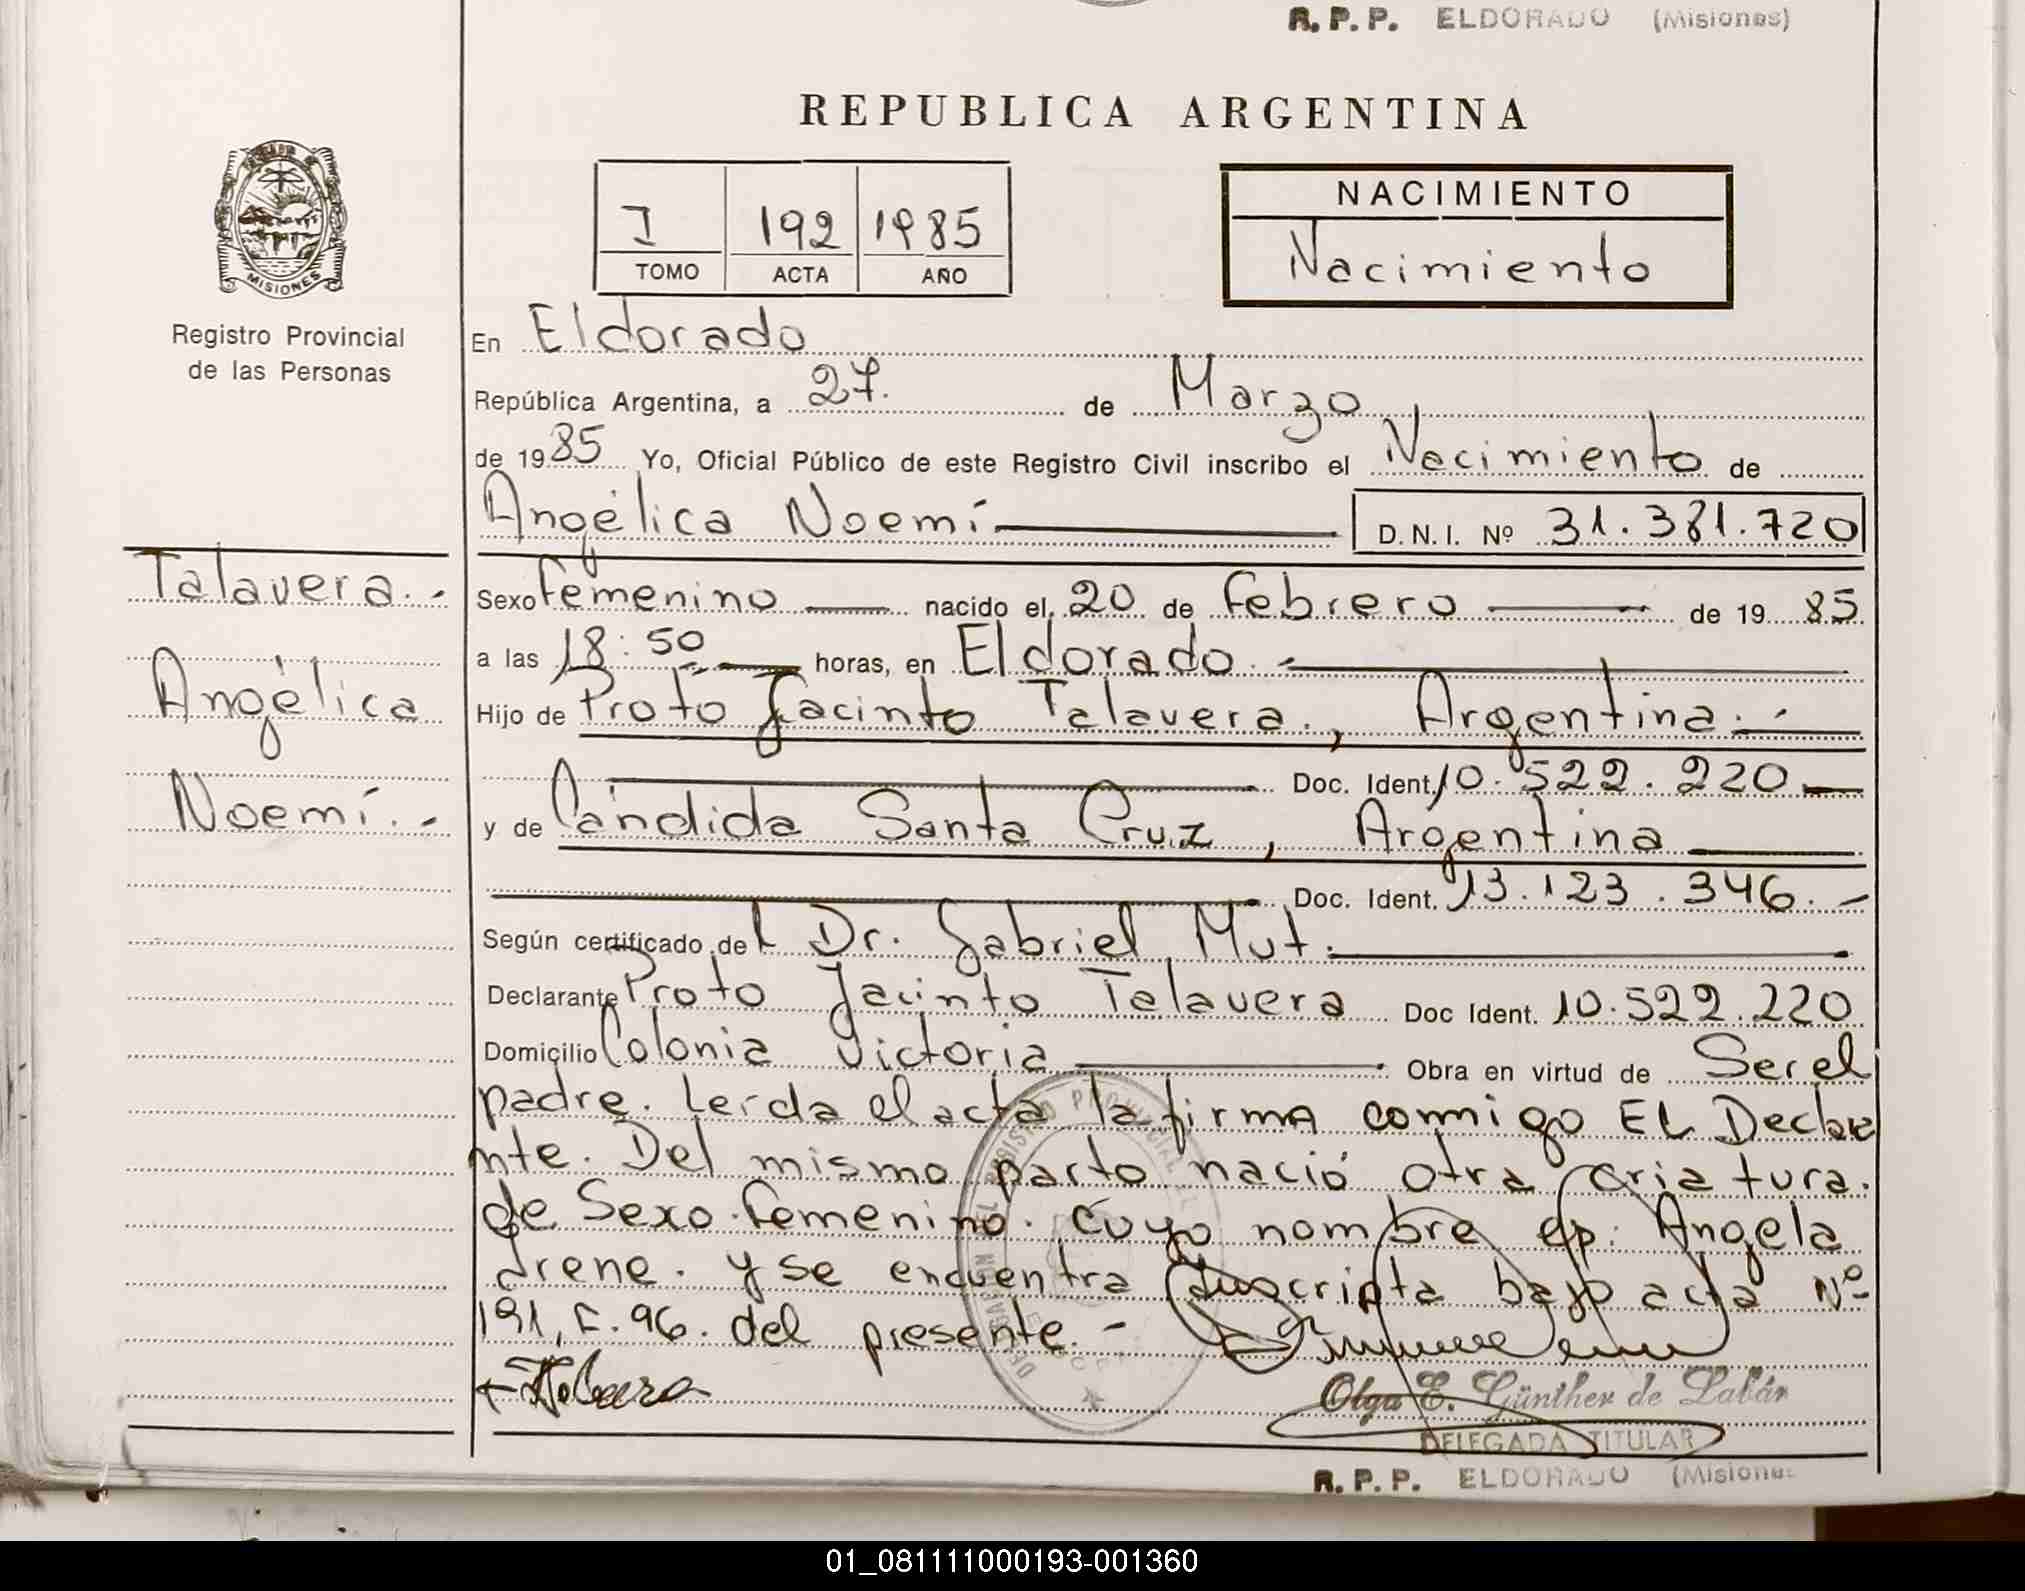 R. P. P. ELDORADO (Misiones)
REPUBLICA ARGENTINA
I 192 1985
TOMO ACTA AÑO
NACIMIENTO
Nacimiento
MISIONES
Registro Provincial
de las Personas
En Eldorado
República Argentina, a 27. de Marzo
de 1985 Yo, Oficial Público de este Registro Civil inscribo el Nacimiento de
Angélica Noemí
D. N. I. Nº 31.381.720
Talavera.-
Angélica
Noemí.-
Sexo femenino nacido el 20 de febrero de 1985
a las 18:50 horas, en Eldorado.-
Hijo de Proto Jacinto Talavera, Argentina.-
Doc. Ident. 10.522.220
y de Cándida Santa Cruz, Argentina
Doc. Ident. 13.123.346.-
Según certificado del Dr. Gabriel Mut.
Declarante Proto Jacinto Talavera Doc Ident. 10.522.220
Domicilio Colonia Victoria Obra en virtud de Ser el
padre. Leída el acta la firma conmigo EL Declara
nte. Del mismo parto nació otra criatura.
de Sexo femenino. cuyo nombre es: Angela
Irene. y se encuentra inscripta bajo acta Nº
191, F. 96. del presente.-
Talavera
Olga E. Günther de Labár
DELEGADA TITULAR
R. P. P. ELDORADO (Misiones
01_081111000193-001360